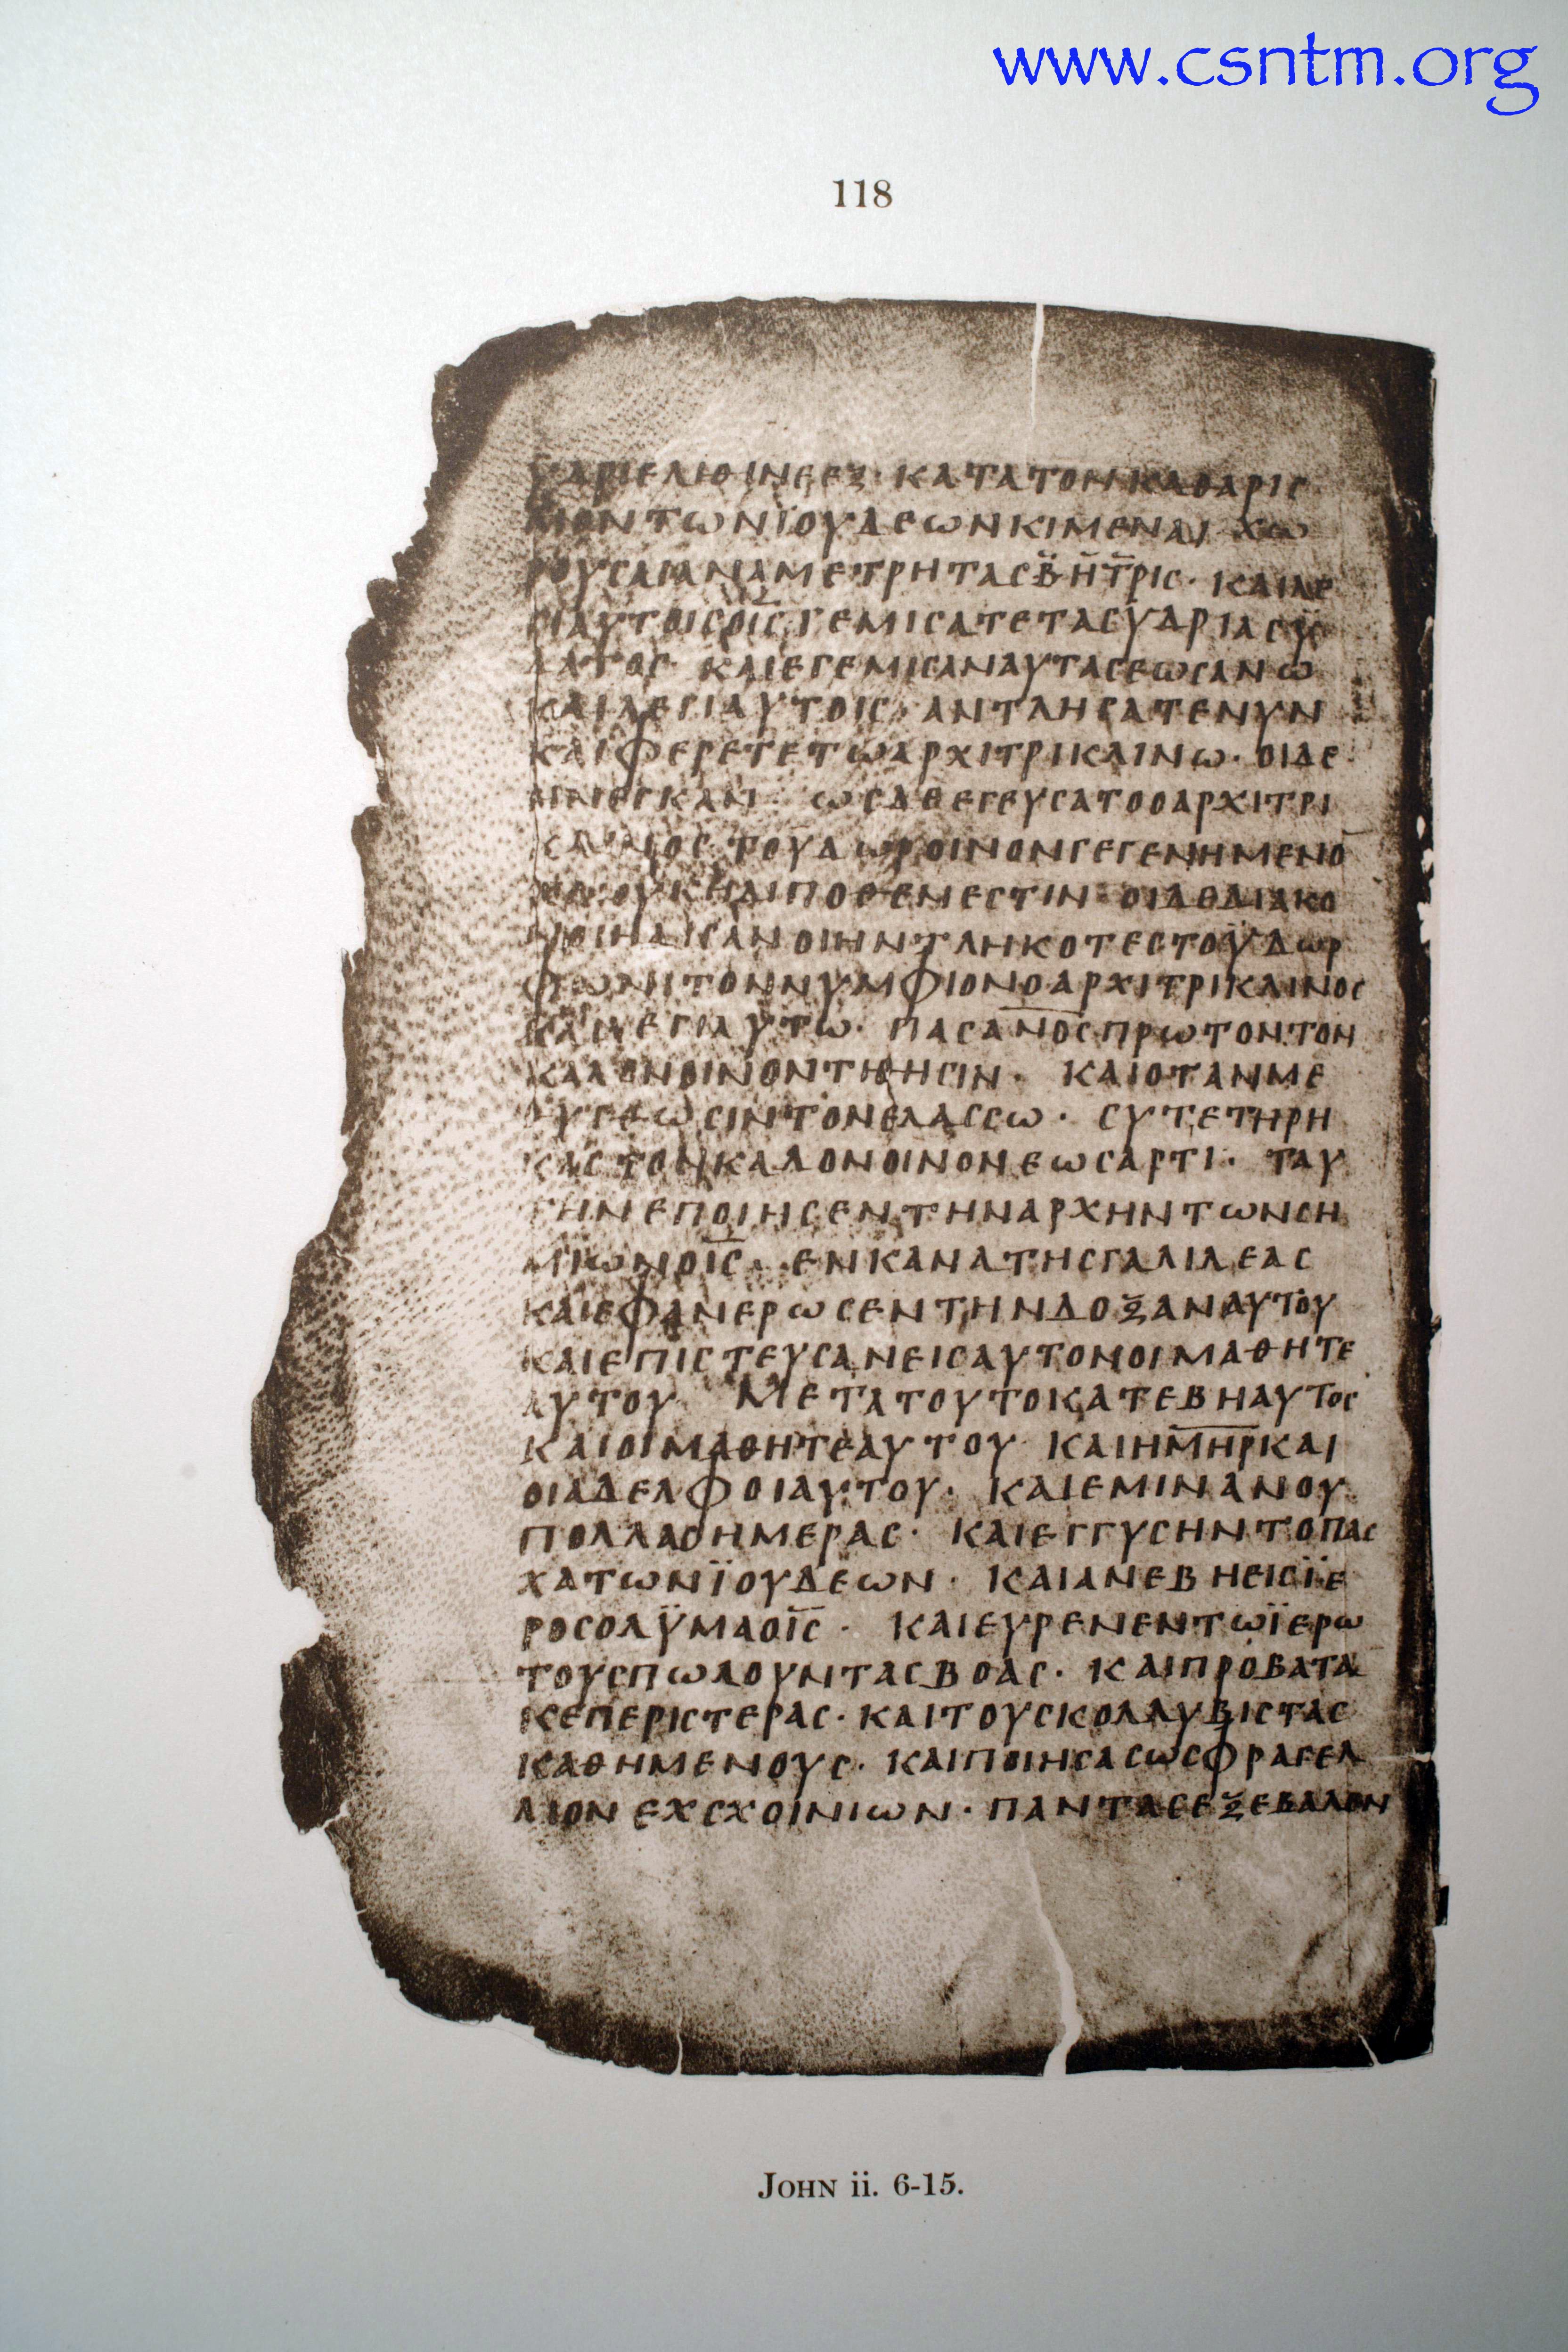 www.csntm.org
118
ΥΔΡΙΕΛΙΘΙΝΕΕΞ· ΚΑΤΑΤΟΝΚΑΘΑΡΙС
ΜΟΝΤωΝΪΟΥΔΕωΝΚΙΜΕΝΑΙ Χω
ΡΟΥСΑΙΑΝΑΜΕΤΡΗΤΑСΒ̅Η̅Τ̅ΡΙС· ΚΑΙΛΕ
ΓΙΑΥΤΟΙСΟΙ̅С̅ΓΕΜΙСΑΤΕΤΑСΥΔΡΙΑСΫ
ΔΑΤΟС· ΚΑΙΕΓΕΜΙСΑΝΑΥΤΑСΕωСΑΝω
ΚΑΙΛΕΓΙΑΥΤΟΙС· ΑΝΤΛΗСΑΤΕΝΥΝ
ΚΑΙΦΕΡΕΤΕΤωΑΡΧΙΤΡΙΚΛΙΝω· ΟΙΔΕ
ΗΝΕΓΚΑΝ· ωСΔΕΕΓΕΥСΑΤΟΟΑΡΧΙΤΡΙ
ΚΛΙΝΟС ΤΟΥΔωΡΟΙΝΟΝΓΕΓΕΝΗΜΕΝΟ̅
ΚΑΙΟΥΚΗΔΙΠΟΘΕΝΕСΤΙΝ· ΟΙΔΕΔΙΑΚΟ
ΝΟΙΗΔΙСΑΝΟΙΗΝΤΛΗΚΟΤΕСΤΟΥΔωΡ
ΦωΝΙΤΟΝΝΥΜΦΙΟΝΟΑΡΧΙΤΡΙΚΛΙΝΟС
ΚΑΙΛΕΓΙΑΥΤω· ΠΑСΑ̅Ν̅Ο̅С̅ΠΡωΤΟΝΤΟΝ
ΚΑΛΟΝΟΙΝΟΝΤΙΘΗСΙΝ· ΚΑΙΟΤΑΝΜΕ
ΘΥСΘωСΙΝΤΟΝΕΛΑССω· СΥΤΕΤΗΡΗ
ΚΑСΤΟΝΚΑΛΟΝΟΙΝΟΝΕωСΑΡΤΙ· ΤΑΥ
ΤΗΝΕΠΟΙΗСΕΝΤΗΝΑΡΧΗΝΤωΝСΗ
ΜΙωΝΟΙ̅С̅· ΕΝΚΑΝΑΤΗСΓΑΛΙΛΕΑС
ΚΑΙΕΦΑΝΕΡωСΕΝΤΗΝΔΟΞΑΝΑΥΤΟΥ
ΚΑΙΕΠΙСΤΕΥСΑΝΕΙСΑΥΤΟΝΟΙΜΑΘΗΤΕ
ΑΥΤΟΥ· ΜΕΤΑΤΟΥΤΟΚΑΤΕΒΗΑΥΤΟС
ΚΑΙΟΙΜΑΘΗΤΕΑΥΤΟΥ· ΚΑΙΗΜ̅Η̅Ρ̅ΚΑΙ
ΟΙΑΔΕΛΦΟΙΑΥΤΟΥ· ΚΑΙΕΜΙΝΑΝΟΥ
ΠΟΛΛΑСΗΜΕΡΑС· ΚΑΙΕΓΓΥСΗΝΤΟΠΑС
ΧΑΤωΝΪΟΥΔΕωΝ· ΚΑΙΑΝΕΒΗΕΙСΪΕ
ΡΟСΟΛΫΜΑΟΙ̅С̅· ΚΑΙΕΥΡΕΝΕΝΤωΪΕΡω
ΤΟΥСΠωΛΟΥΝΤΑСΒΟΑС· ΚΑΙΠΡΟΒΑΤΑ
ΚΕΠΕΡΙСΤΕΡΑС· ΚΑΙΤΟΥСΚΟΛΛΥΒΙСΤΑС
ΚΑΘΗΜΕΝΟΥС· ΚΑΙΠΟΙΗСΑСωСΦΡΑΓΕΛ
ΛΙΟΝΕΧСΧΟΙΝΙωΝ· ΠΑΝΤΑСΕΞΕΒΑΛΟΝ
JOHN ii. 6-15.